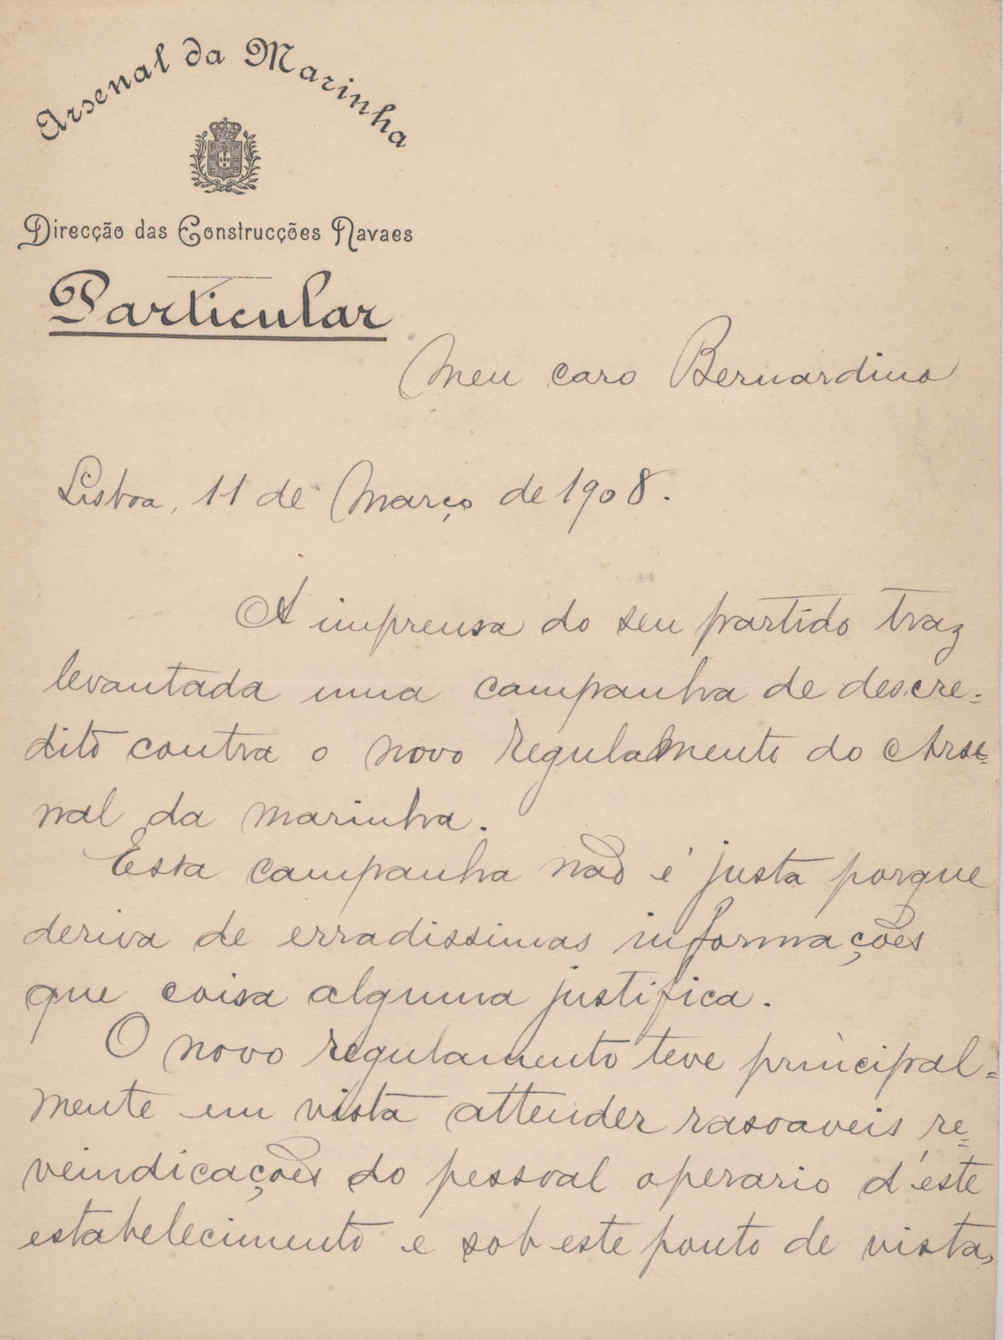 Arsenal da Marinha
Direcção das Construcções Navaes
Particular
Meu caro Bernardino
Lisboa, 11 de Março de 1908.
A imprensa do seu partido traz
levantada uma campanha de descre-
dito contra o novo regulamento do Arse-
nal da marinha.
Essa campanha não é justa porque
deriva de erradissimas informações
que coisa alguma justifica.
O novo regulamento teve principal-
mente em vista attender rasoaveis re-
veindicações do pessoal operario d'este
estabelecimento e sob este ponto de vista,